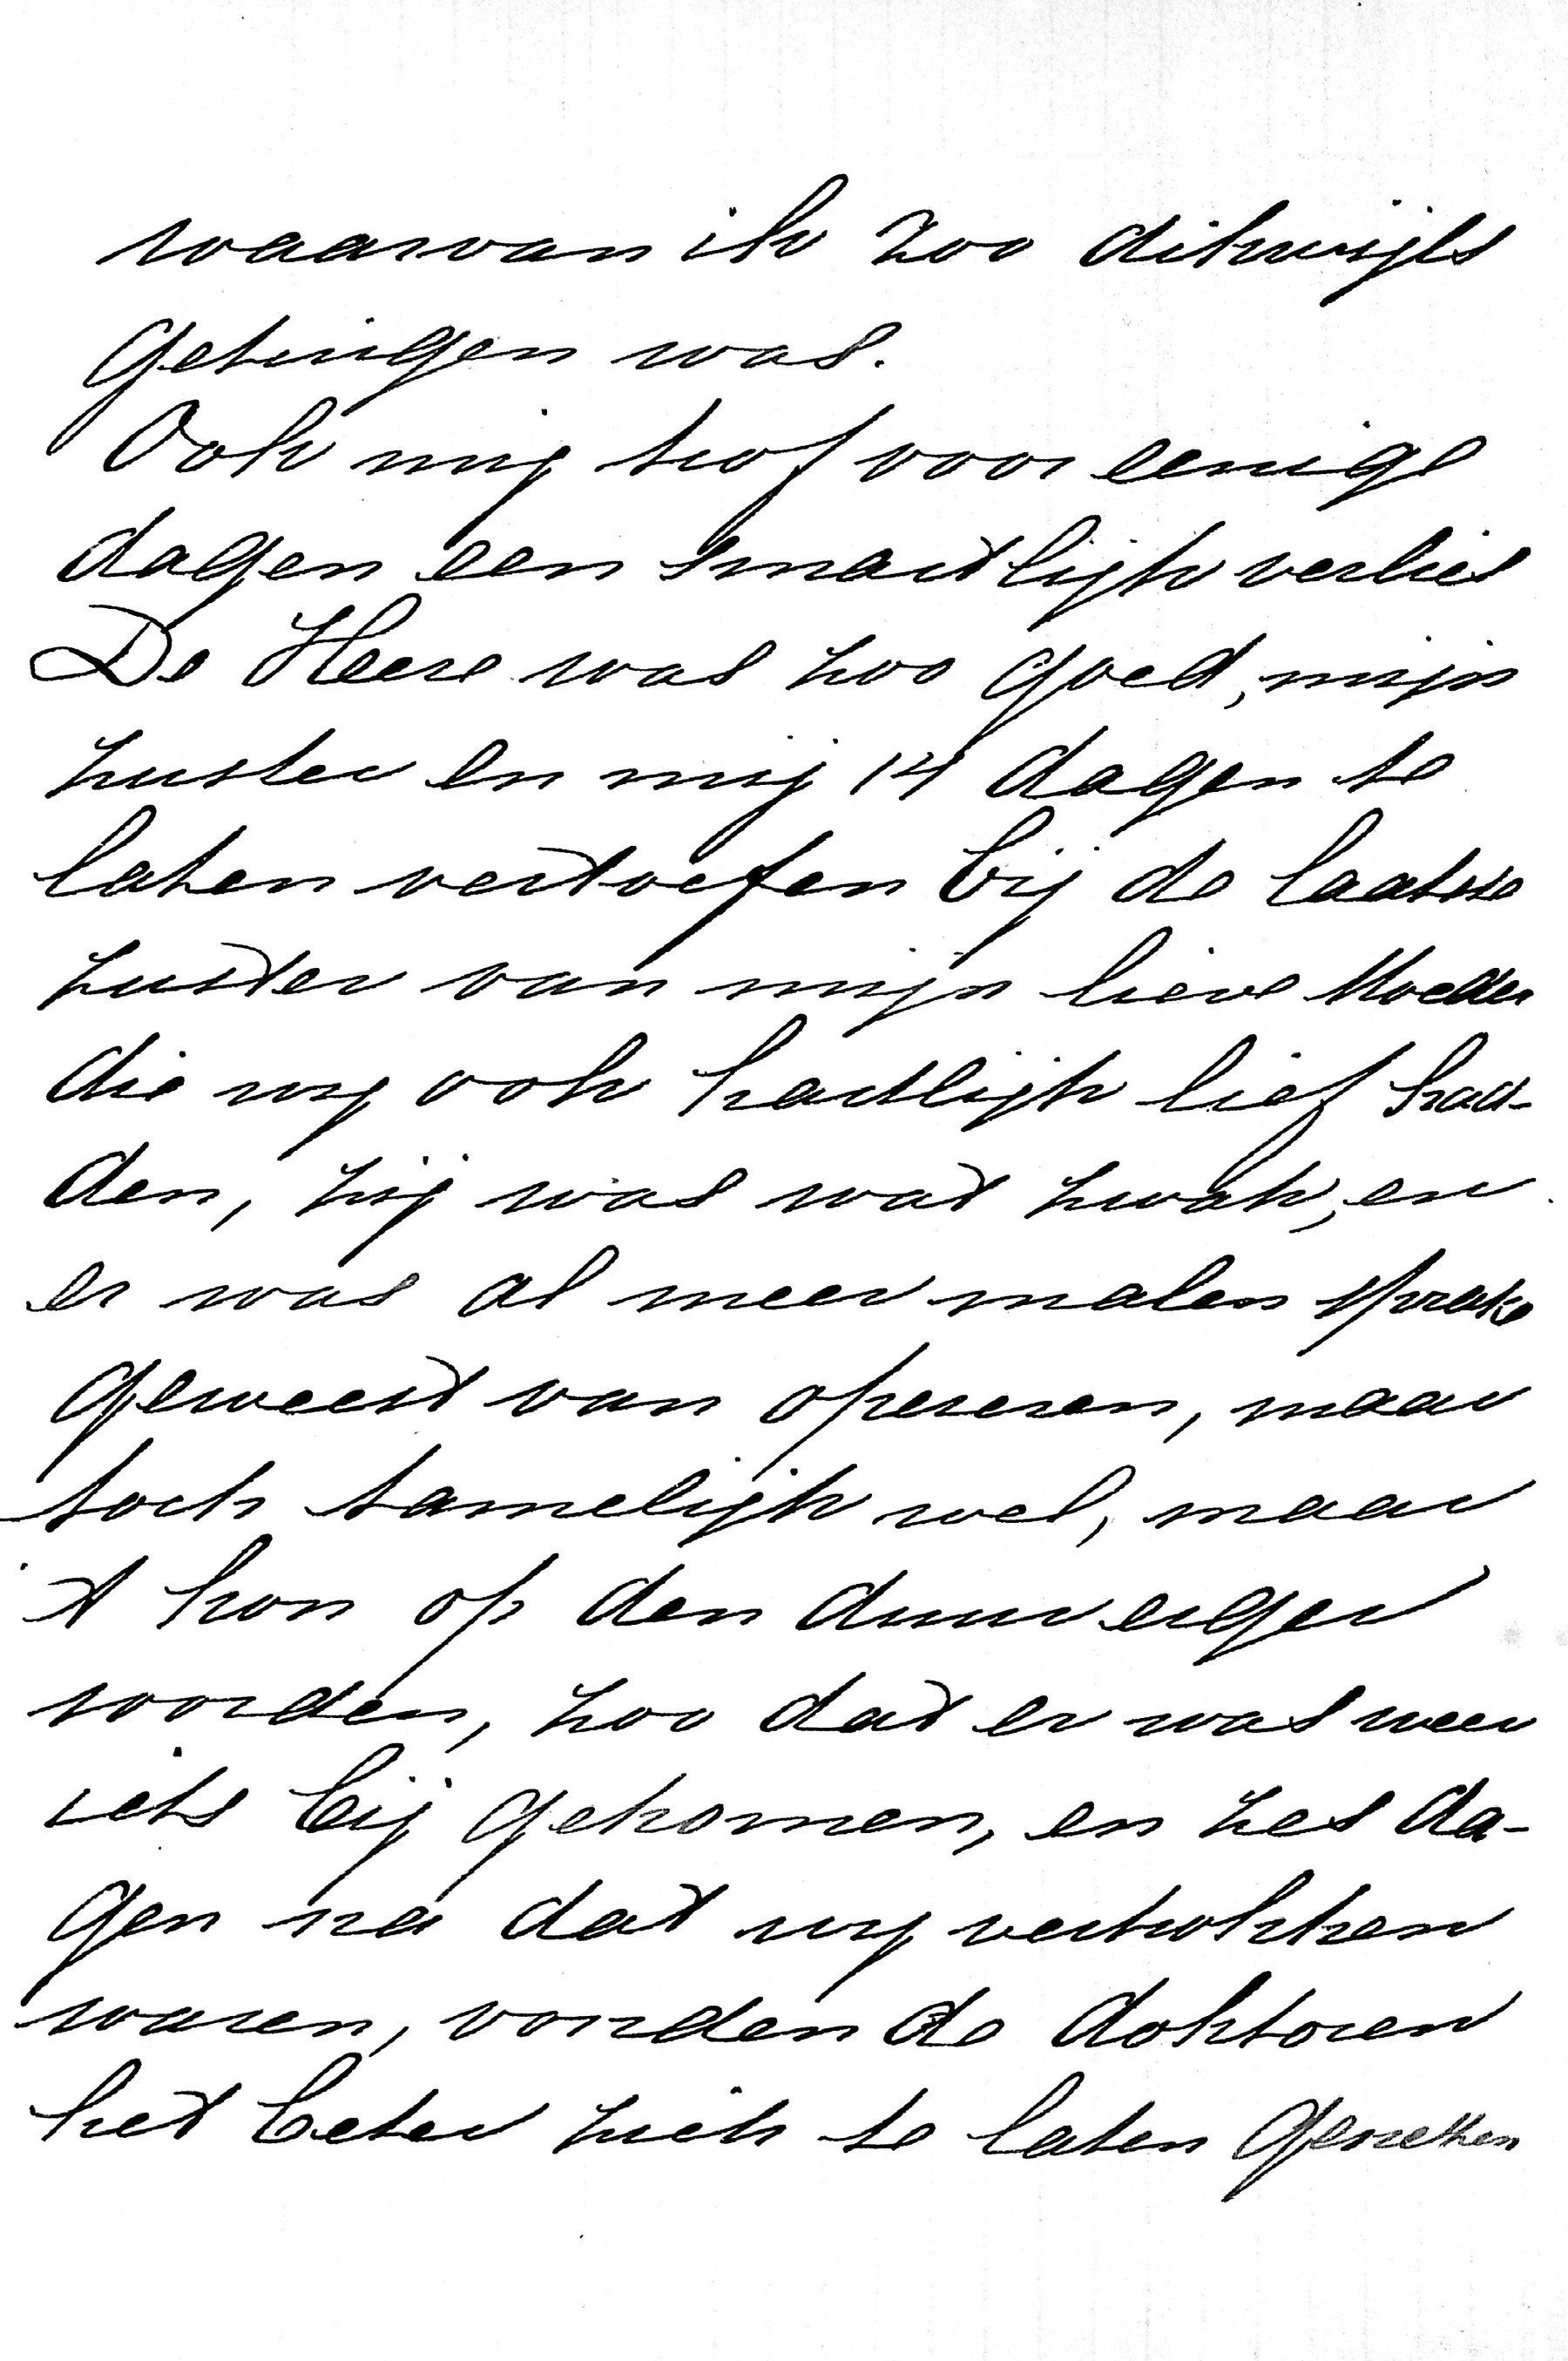 waarvan ik zoo dikwijls
getuigen was.
Ook mij trof voor eenige
dagen een smartlijk verlies
De Heere was zoo goed, mijn
zuster en mij 14 dagen te
laten vertoefen bij de laatste
zuster van mijn lieve Moeder
die wij ook hartlijk lief had-
den, zij was wat zwak, en
er was al meer malen sprake
geweest van opereren, maar
toch tamelijk wel, maar
't kon op den duur erger
worden, zoo dat er was weer
iets bij gekomen, en zes da-
gen na dat wij vertrokken
waren, vonden de doktoren
het beter zich te laten